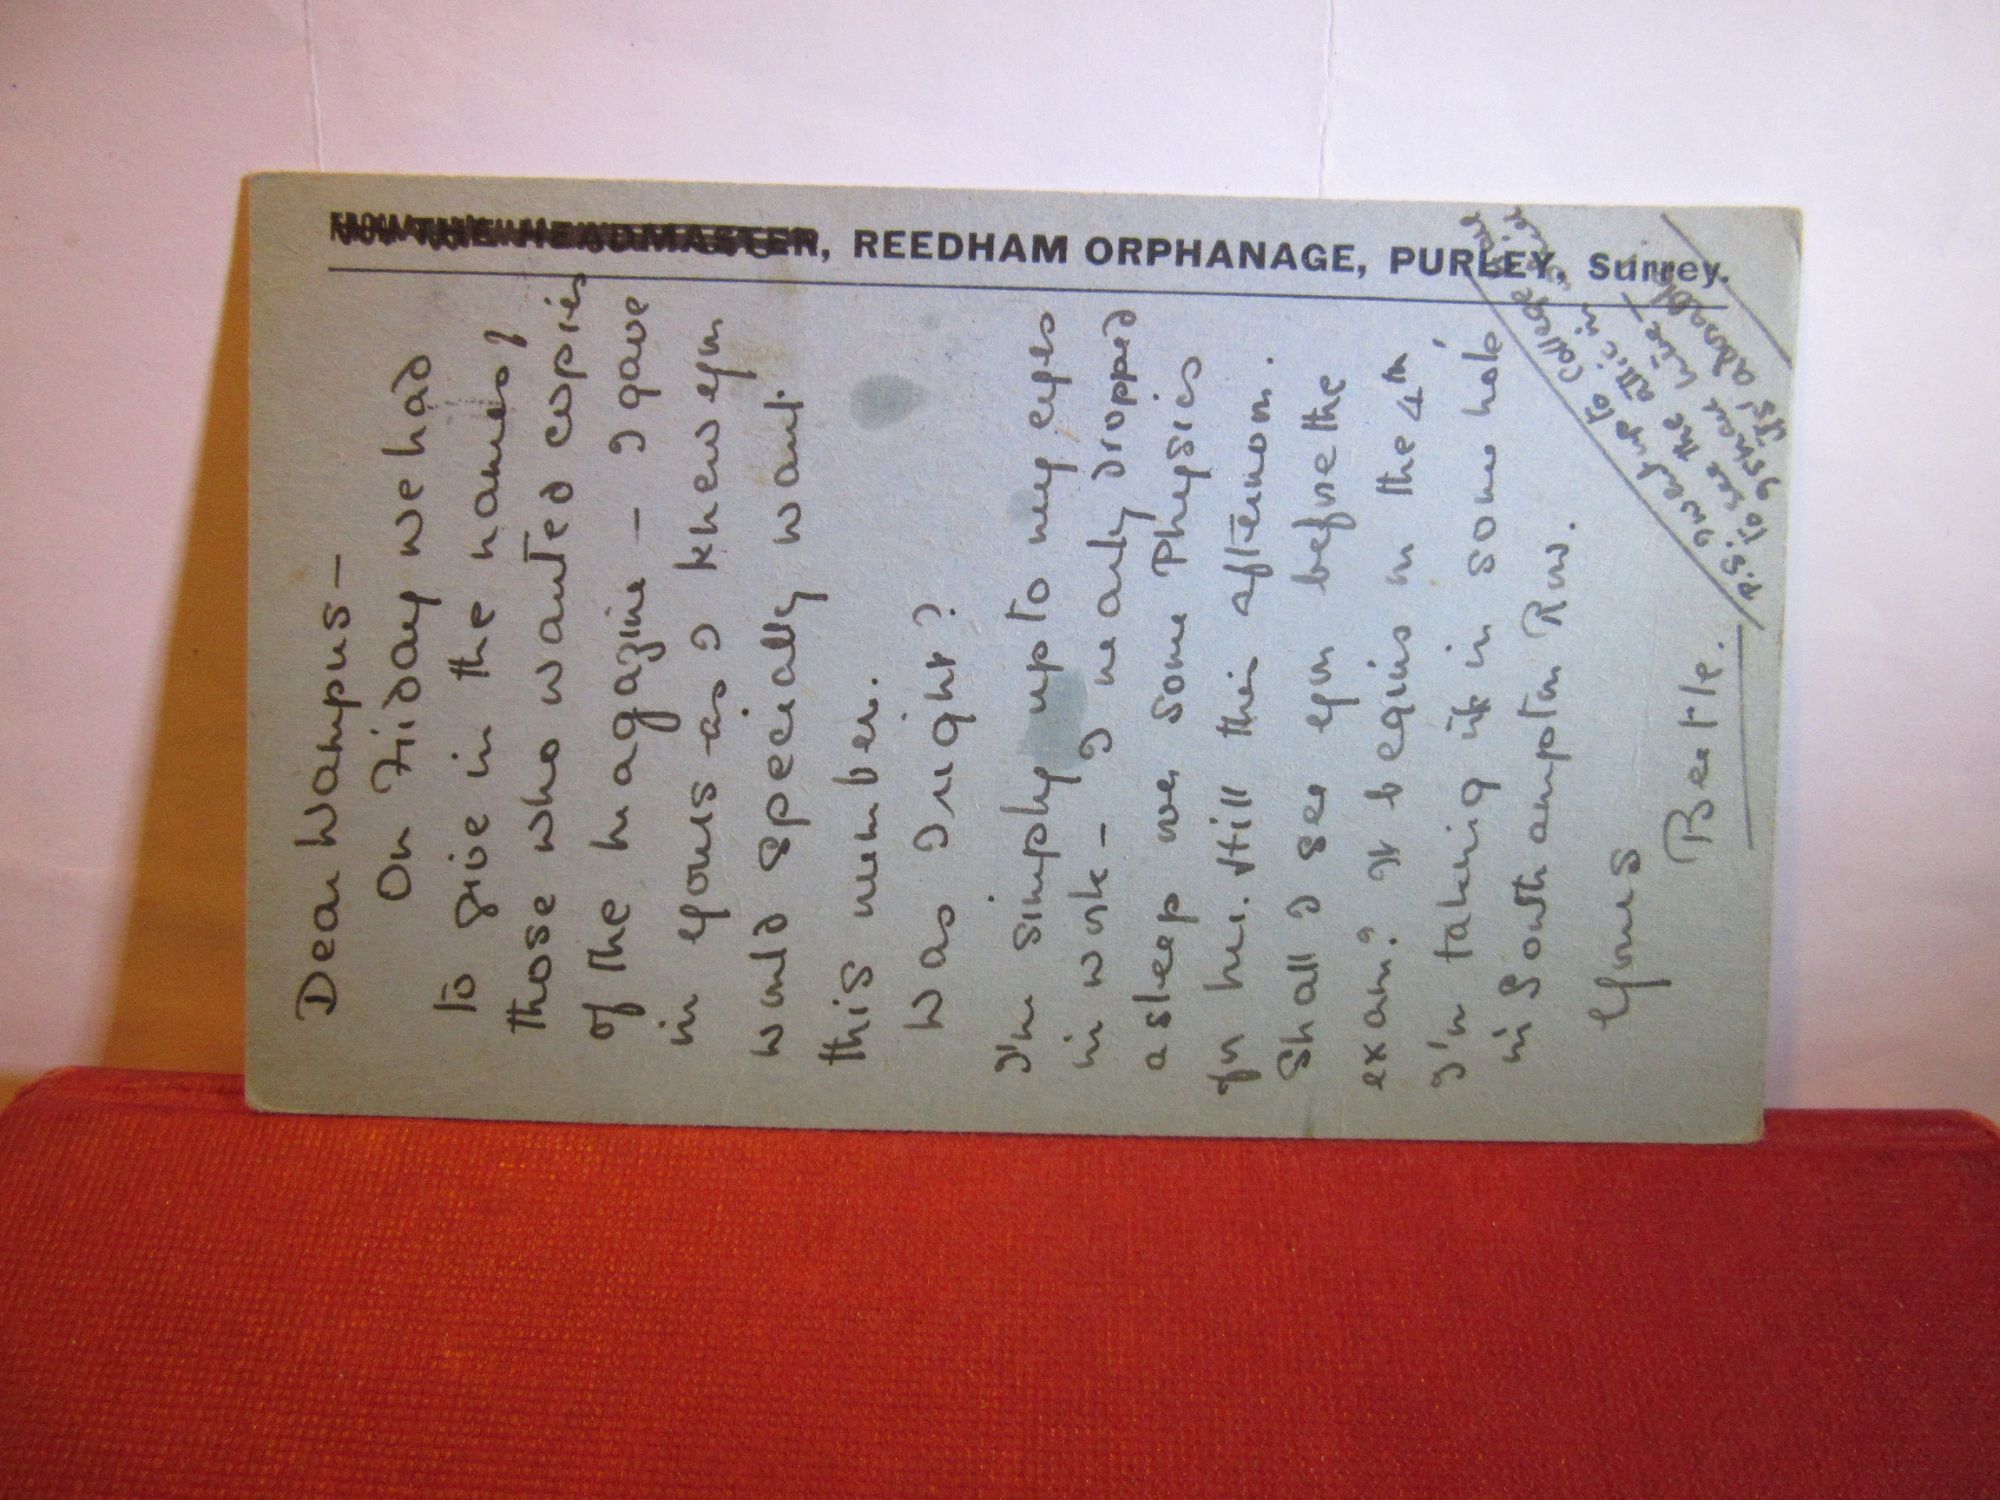 FROM THE HEADMASTER, REEDHAM ORPHANAGE, PURLEY, Surrey.
Dear Wampus –
On Friday we had
to give in the names of
those who wanted copies
of the magazine – I gave
in yours as I knew you
would specially want
this number.
Was I right?
I'm simply up to my eyes
in work – I nearly dropped
asleep over some Physics
for hr. still this afternoon.
Shall I see you before the
exam? It begins on the 4th,
I'm taking it in some hole
in Southampton Row.
Yours
Beetle.
P.S. I went up to College
to see the attic in
95 new wire
It's adorable